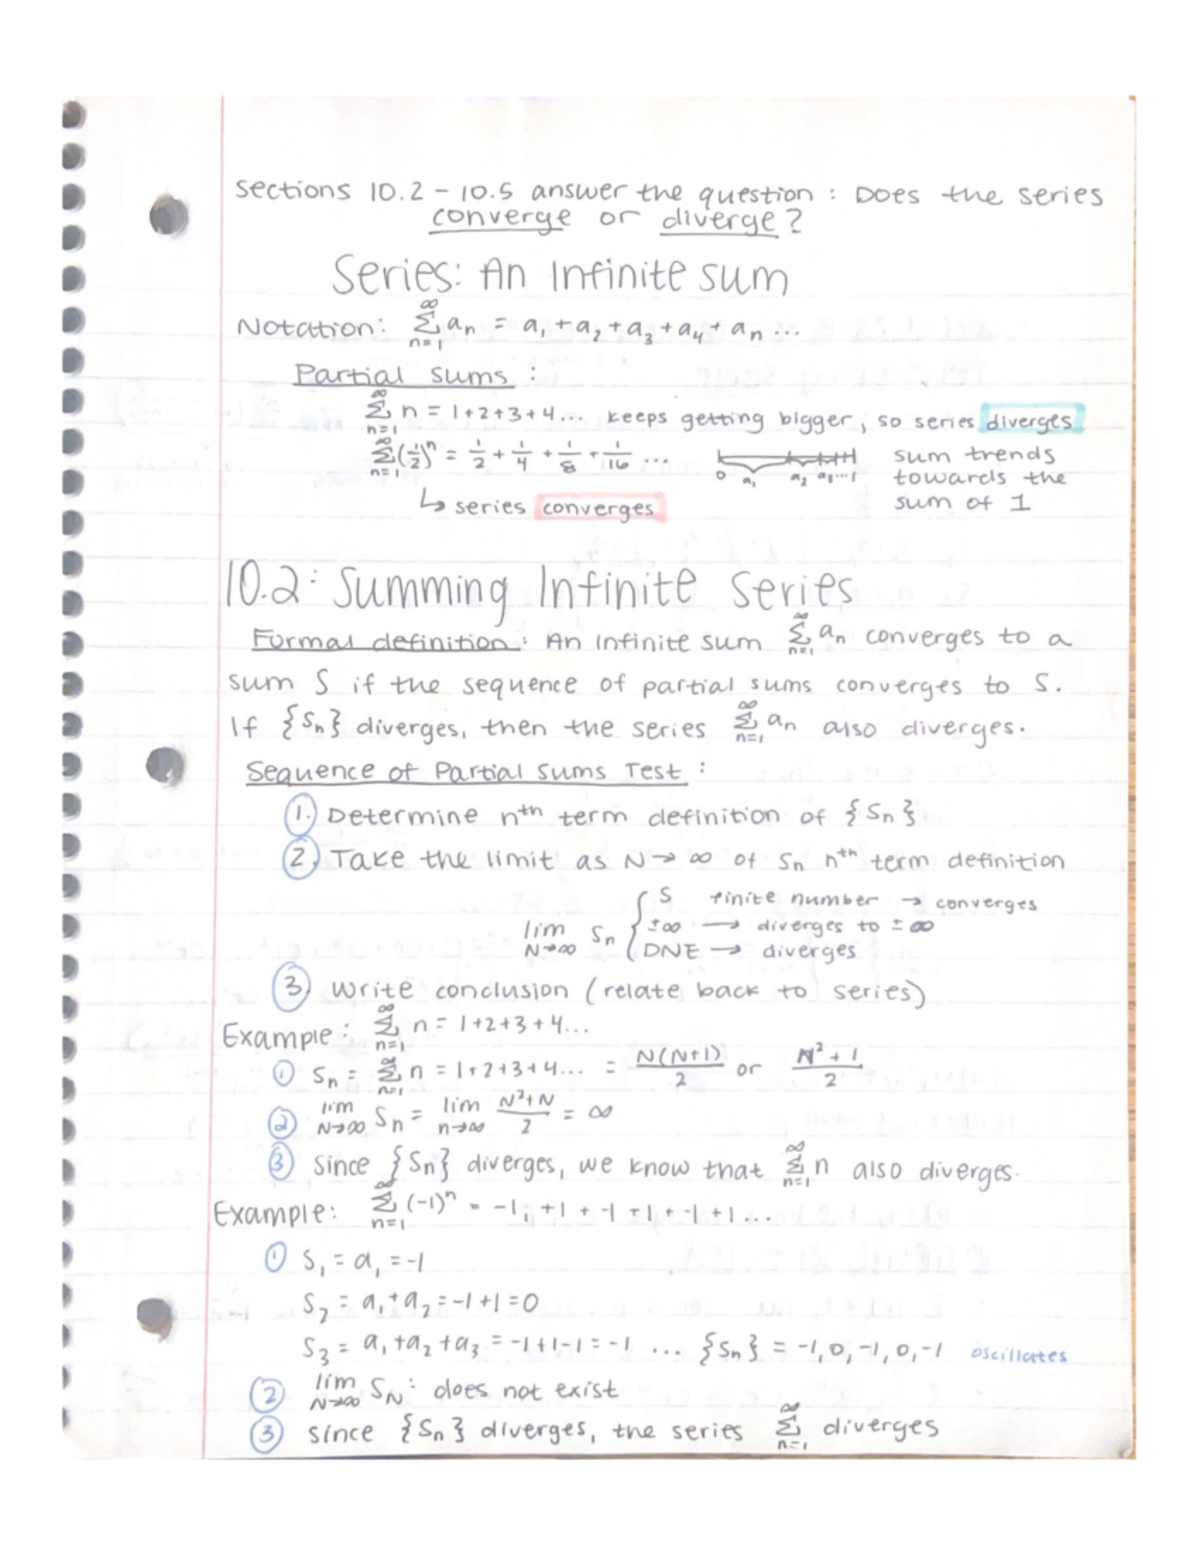 Sections 10.2 - 10.5 answer the question : Does the series
converge or diverge?
Series: An Infinite sum
Notation: ∞Σn=1 an = a1 + a2 + a3 + a4 + an ...
Partial sums :
∞Σn=1 n = 1+2+3+4... keeps getting bigger, so series diverges
∞Σn=1 (1/2)^n = 1/2 + 1/4 + 1/8 + 1/16 ... 0 a1 a2 a3...1 sum trends
towards the
sum of 1
↳ series converges
10.2: Summing Infinite Series
Formal definition : An infinite sum ∞Σn=1 an converges to a
sum S if the sequence of partial sums converges to S.
If {Sn} diverges, then the series ∞Σn=1 an also diverges.
Sequence of Partial Sums Test :
1. Determine nth term definition of {Sn}
2. Take the limit as N→∞ of Sn nth term definition
lim N→∞ Sn { S finite number → converges
±∞ → diverges to ±∞
DNE → diverges
3. Write conclusion (relate back to series)
Example: ∞Σn=1 n = 1+2+3+4...
① Sn = ∞Σn=1 n = 1+2+3+4... = N(N+1)/2 or N²+1/2
② lim N→∞ Sn = lim n→∞ N²+N/2 = ∞
③ Since {Sn} diverges, we know that ∞Σn=1 n also diverges.
Example: ∞Σn=1 (-1)^n = -1, +1 + -1 +1 + -1 +1...
① S1 = a1 = -1
S2 = a1+a2 = -1+1=0
S3 = a1+a2+a3 = -1+1-1 = -1 ... {Sn} = -1,0,-1,0,-1 oscillates
② lim N→∞ SN: does not exist
③ since {Sn} diverges, the series ∞Σn=1 diverges